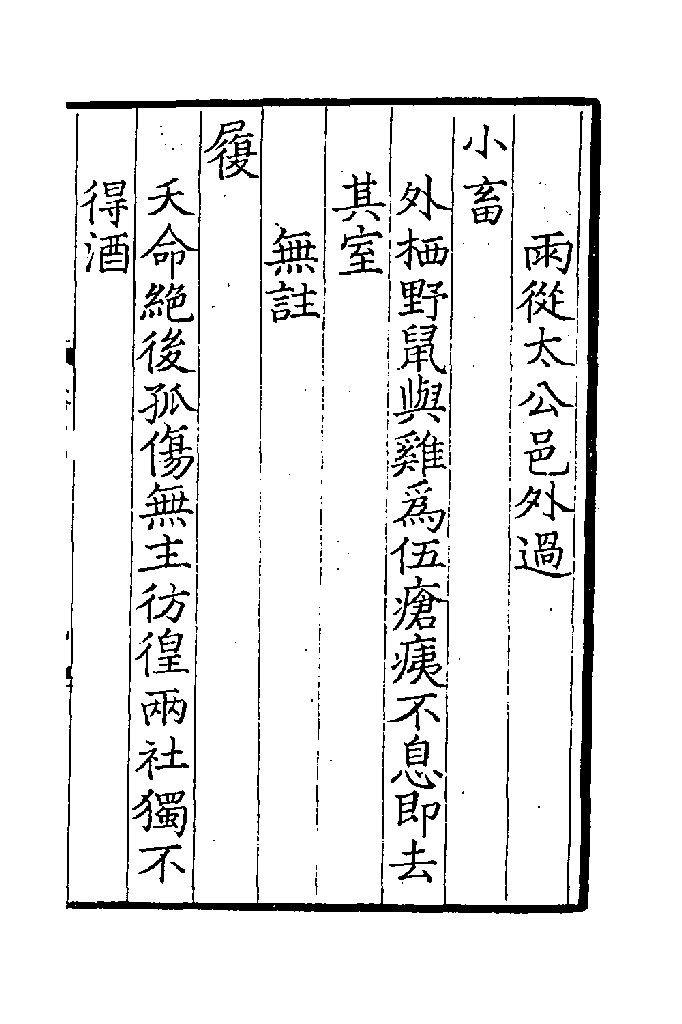 雨從太公邑外過
小畜
外栖野鼠與雞為伍瘡痍不息即去
其室
無註
履
夭命絕後孤傷無主彷徨兩社獨不
得酒